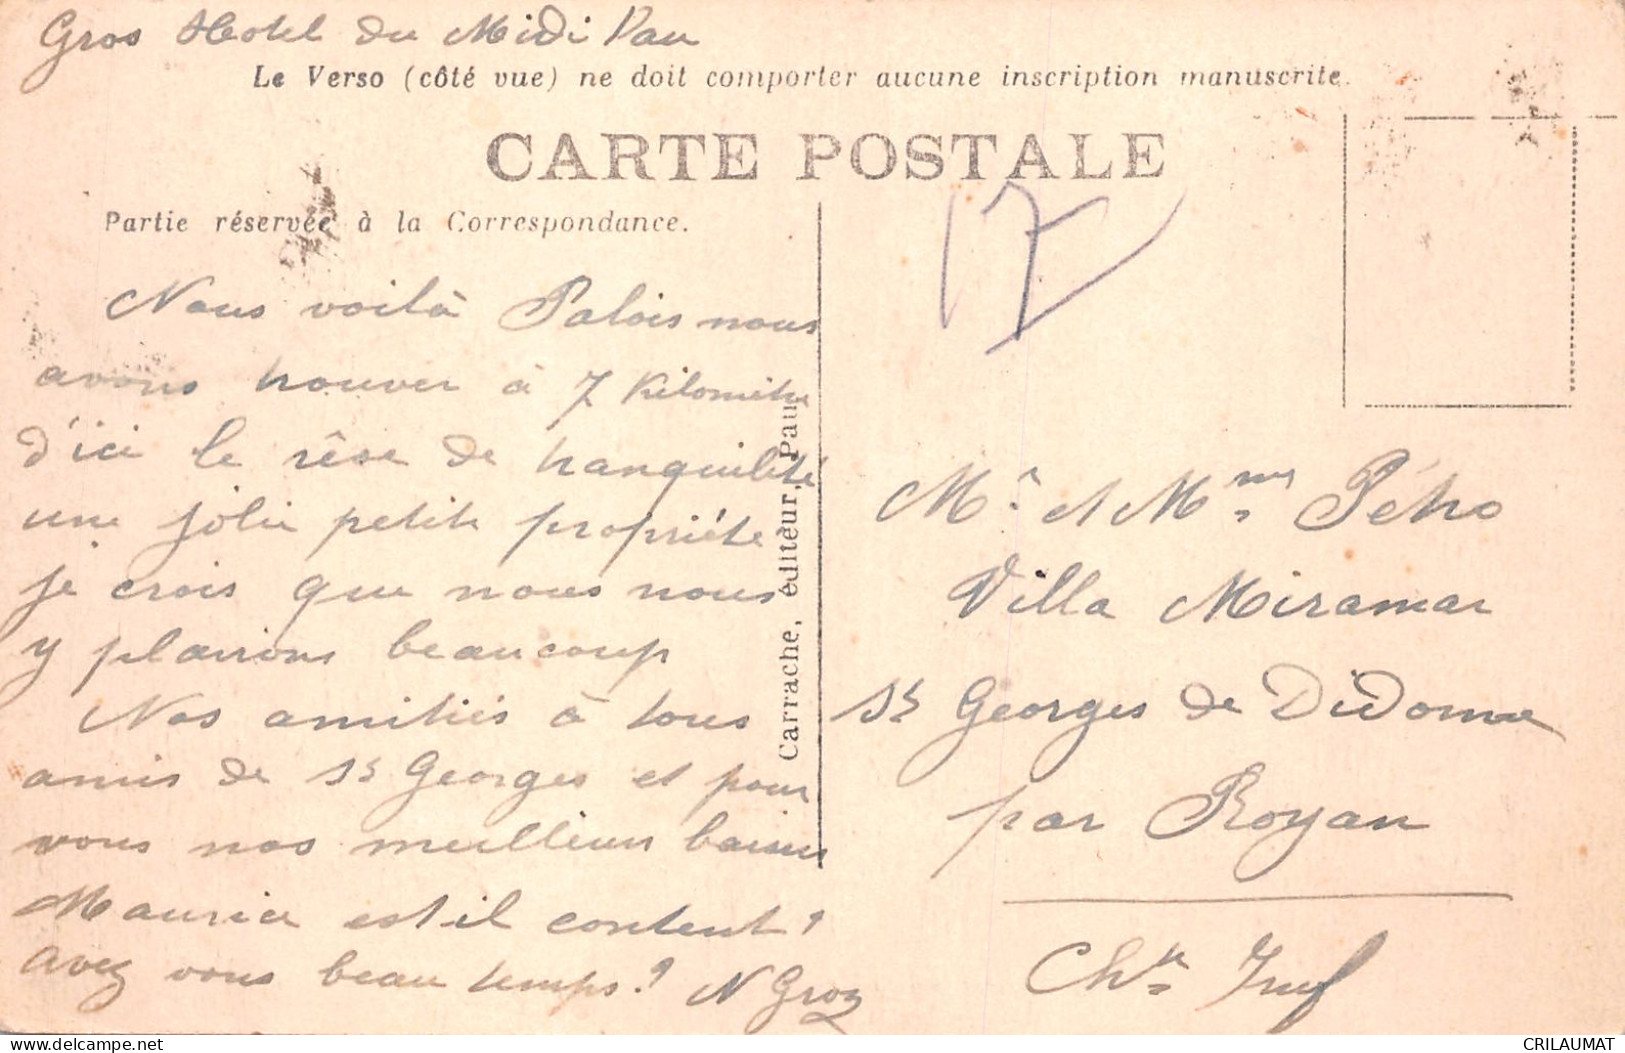 Gros Hotel du Midi Pau
Le Verso (côté vue) ne doit comporter aucune inscription manuscrite.
CARTE POSTALE
Partie réservée à la Correspondance.
17
Nous voilà Palois nous
avons trouver à 7 Kilomètre
d'ici le rêve de tranquilité
une jolie petite propriété
je crois que nous nous
y plairions beaucoup
Nos amitiés à tous
amis de St Georges et pour
vous nos meilleurs baisers
Maurice est il content ?
avez vous beau temps ? N Groz
Carrache, éditeur, Pau
Mr et Mme
Villa Miramar
St Georges de Didonne
par Royan
Chte Inf
CRILAUMAT